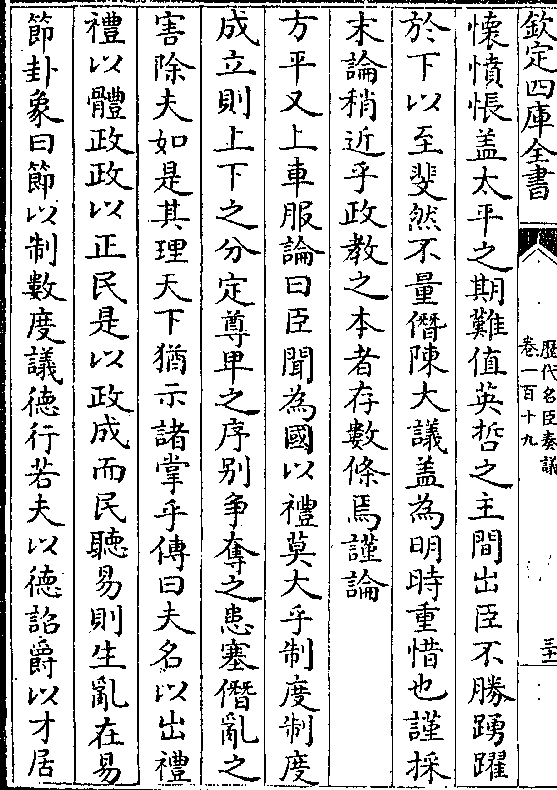 欽定四庫全書
歷代名臣奏議
卷一百十九
三十
懐憤悵盖太平之期難值英哲之主間出臣不勝踴躍
於下以至斐然不量僭陳大議盖為明時重惜也謹採
末論稍近乎政教之本者存數條焉謹論
方平又上車服論曰臣聞為國以禮莫大乎制度制度
成立則上下之分定尊卑之序别争奪之患塞僭亂之
害除夫如是其理天下猶示諸掌乎傳曰夫名以出禮
禮以體政政以正民是以政成而民聽易則生亂在易
節卦象曰節以制數度議徳行若夫以徳詔爵以才居